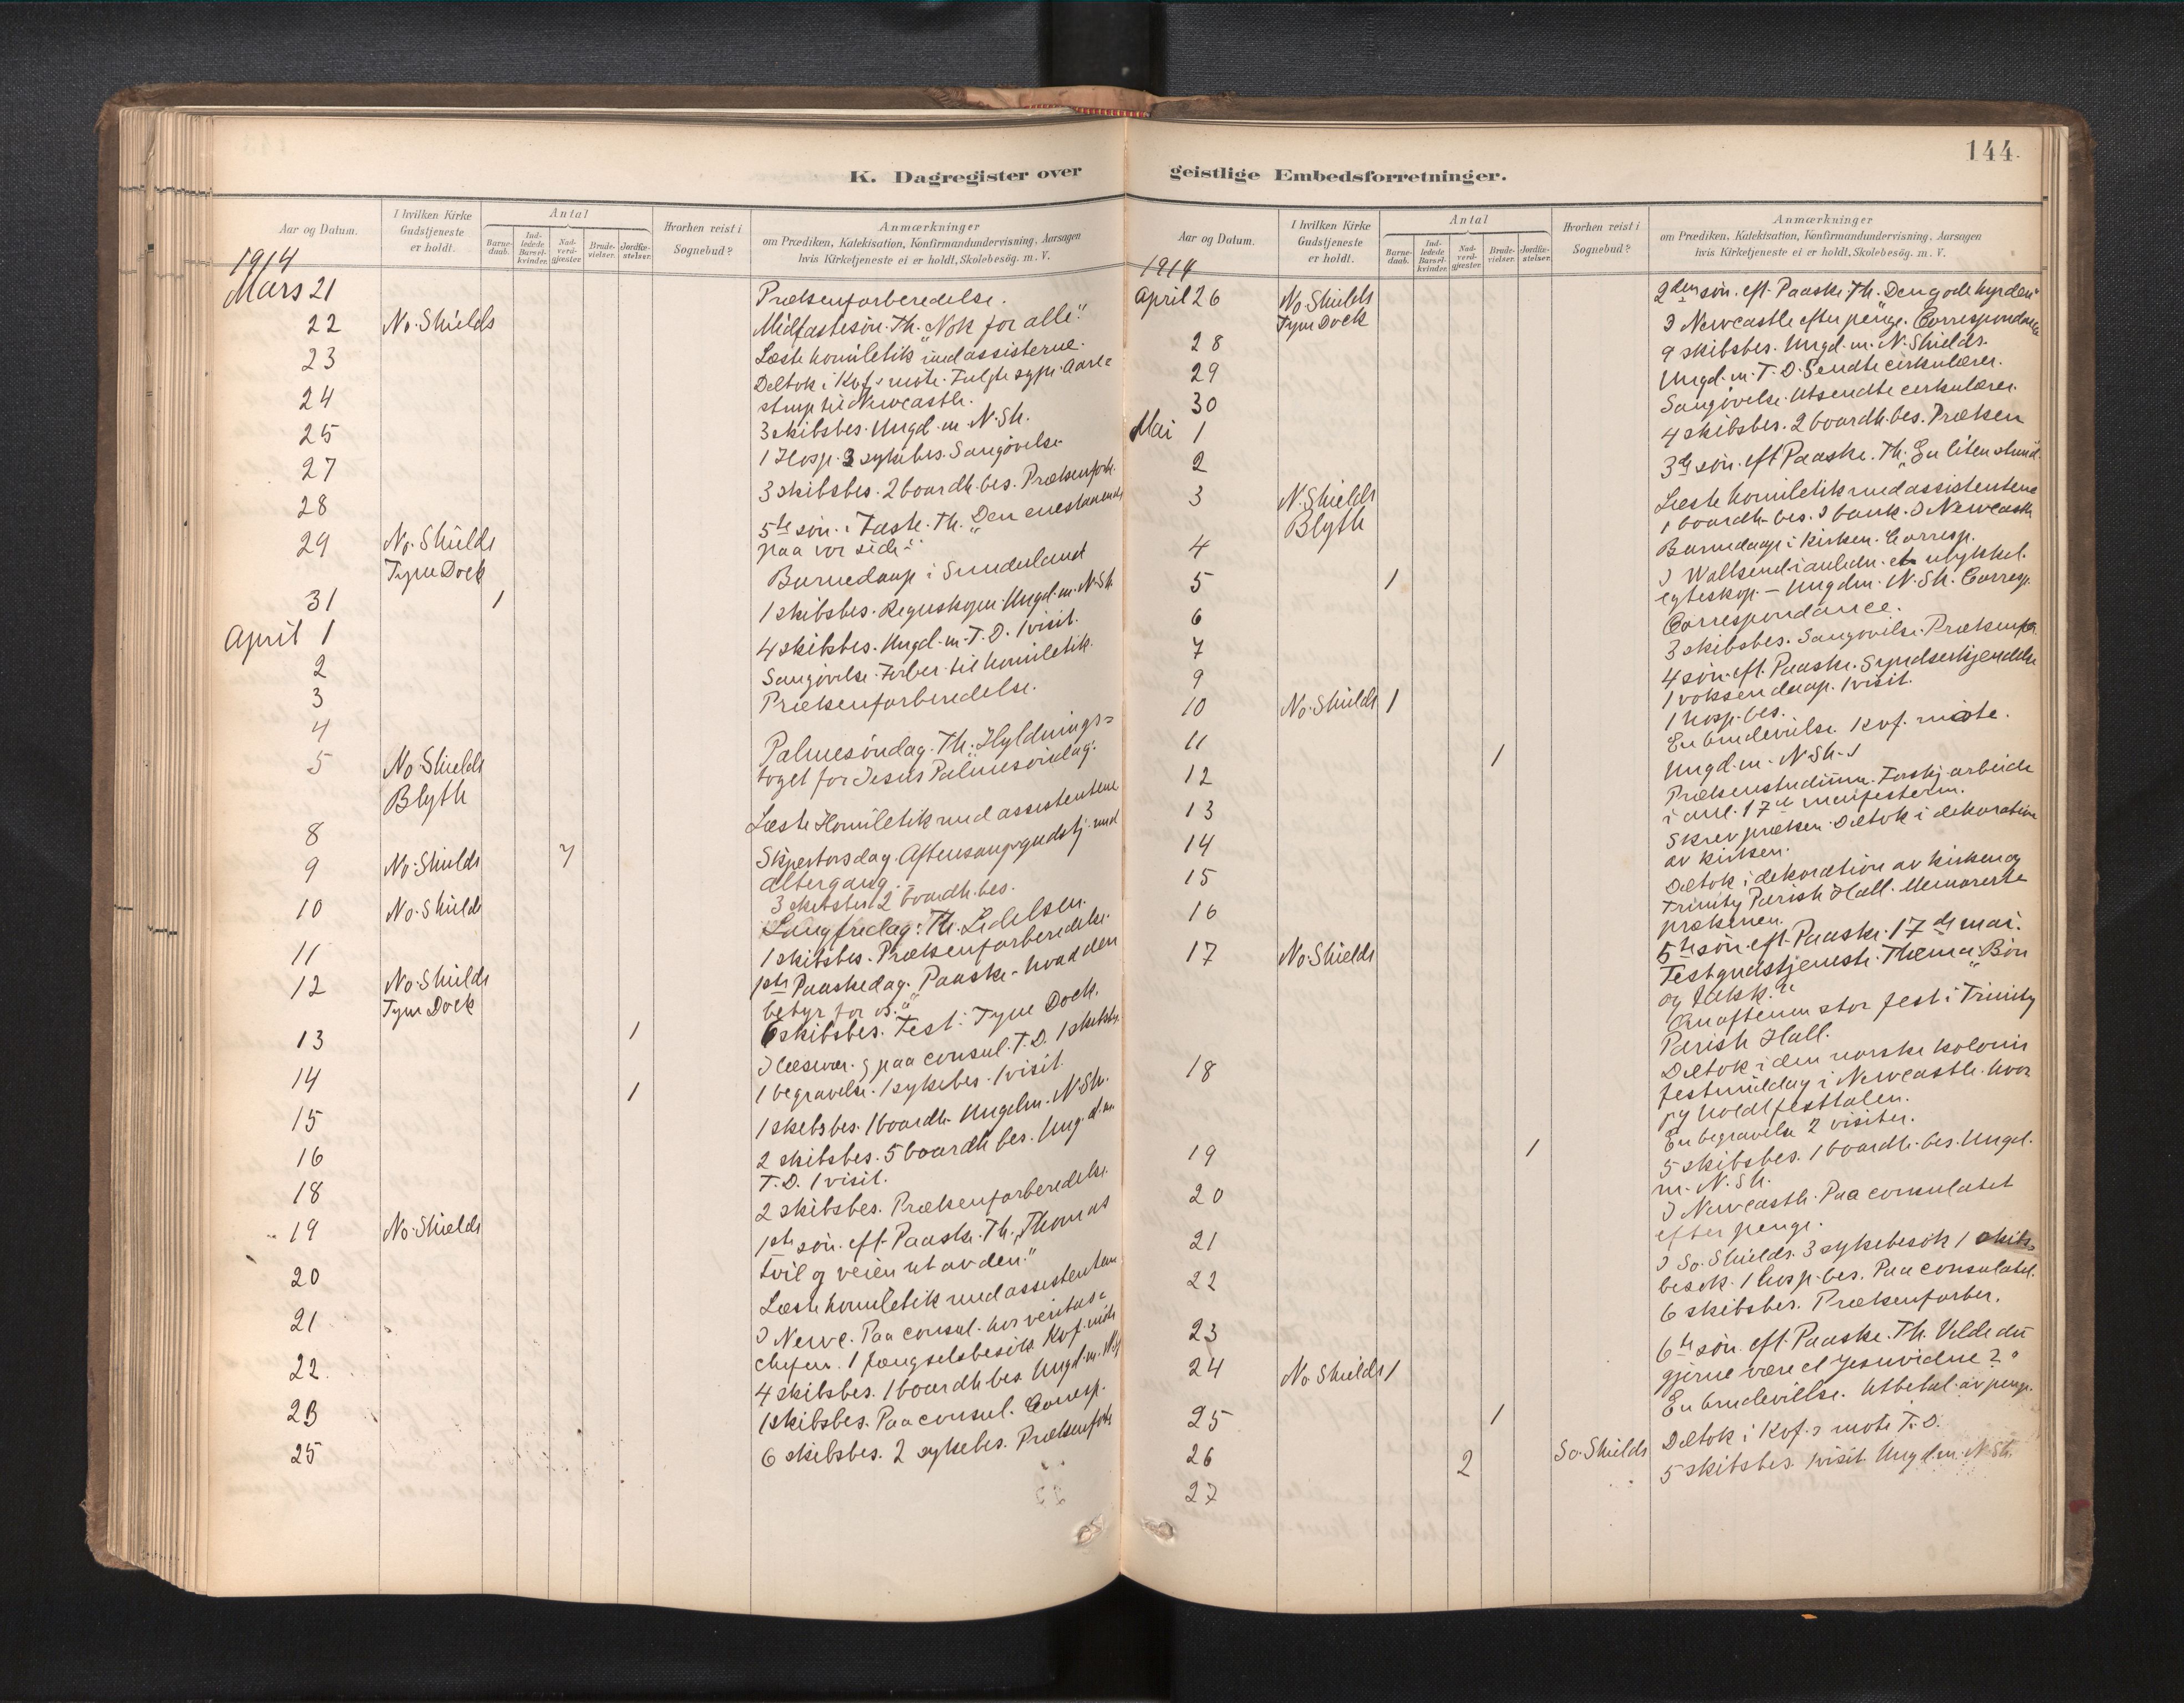 144.
K. Dagregister over
geistlige Embedsforretninger.
Aar og Datum.
I hvilken Kirke Gudstjeneste er holdt.
Antal
Barne-daab.
Ind-ledede Barsel-kvinder.
Nad-verd-gjæster.
Brude-vielser.
Jordfæ-stelser.
Hvorhen reist i Sognebud?
Anmærkninger
om Prædiken, Katekisation, Konfirmandundervisning, Aarsagen
hvis Kirketjeneste ei er holdt, Skolebesög. m. V.
1914
Mars 21 Prækenforberedelse.
22 No. Shields Midfastesön. Th. "Nok for alle."
23 Læste homiletik med assisterne.
24 Deltok i Kvf.s möte. Fulgte
til Newcastle.
25 3 skibsbes. Ungd. m. N. Sh.
27 1 Hosp. 3 sykebes. Sangövelse
28 3 skibsbes. 2 boardh. bes. Prækenforb.
29 No. Shields 5te sön. i Faste. Th. "Den enestaaende
Tyne Dock paa vor side".
31 1 Barnedaap i Sunderland
April 1 1 skibsbes. Regnskapen. Ungd. m. N. Sh.
2 4 skibsbes. Ungd. m. T. D. 1 visit.
3 Sangövelse. Forber. til homiletik.
4 Prækenforberedelse.
5 No. Shields Palmesöndag. Th: Hyldnings=
Blyth toget for Jesus Palmesöndag.
8 Læste Homiletik med assistentene
9 No. Shields 7 Skjærtorsdag. Aftensangsgudstj. med
altergang.
3 skibsbes. 2 boardh. bes.
10 No. Shields Langfredag: Th. Lidelsen.
11 1 skibsbes. Prækenforberedelse.
12 No. Shields 1ste Paaskedag. "Paaske - hvad den
Tyne Dock betyr for os."
13 1 6 skibsbes. Fest i Tyne Dock.
14 1 I læsevær. og paa consul. T. D. 1 skibsbes.
15 1 begravelse. 1 sykebes. 1 visit.
1 skibsbes. 1 boardh. Ungdm. N. Sh.
16 2 skibsbes. 5 boardh. bes. Ungd. m.
T. D. 1 visit.
18 2 skibsbes. Prækenforberedelse.
19 No. Shields 1ste sön. eft. Paaske. Th. "Thomas
tvil og veien ut av den."
20 Læste homiletik med assistentene
21 I Newc. Paa consul. hos veritas=
chefen. 1 fængselsbesök. Kvf. möte
22 4 skibsbes. 1 boardh. bes. Ungd. m. N. Sh
23 1 skibsbes. Paa consul. Corresp.
25 6 skibsbes. 2 sykebes. Prækenforb.
Aar og Datum.
I hvilken Kirke Gudstjeneste er holdt.
Antal
Barne-daab.
Ind-ledede Barsel-kvinder.
Nad-verd-gjæster.
Brude-vielser.
Jordfæ-stelser.
Hvorhen reist i Sognebud?
Anmærkninger
om Prædiken, Katekisation, Konfirmandundervisning, Aarsagen
hvis Kirketjeneste ei er holdt, Skolebesög. m. V.
1914
April 26 No. Shields 2den sön. eft. Paaske Th. "Den gode hyrden"
Tyne Dock I Newcastle efter penge. Correspondance
28 9 skibsbes. Ungd. m. N. Shields.
29 Ungd. m. T. D. Sendte cirkulærer.
30 Sangövelse. Utsendte cirkulærer.
Mai 1 4 skibsbes. 2 boardh. bes. Præken
2 3de sön. eft Paaske. Th. "En liten stund
3 N. Shields Læste homiletik med assistentene
Blyth 1 boardh. bes. I bank. I Newcastle
4 Barnedaap i kirken. Corresp.
5 1 I Wallsend i anledn. et ulykkel.
egteskap. - Ungdm. N. Sh. Corresp.
6 Correspondance.
7 3 skibsbes. Sangövelse. Prækenfor.
9 4 sön. eft. Paaske. Syndserkjendelse
10 No. Shields 1 1 voksendaap. 1 visit.
1 hosp. bes.
11 1 En brudevielse. Kvf. möte.
12 Ungd. m. N. Sh.
13 Prækenstudium. Forskj. arbeide
i anl. 17de maifesten.
14 Skrev præken. Deltok i dekoration
av kirken.
15 Deltok i dekoration av kirken og
Trinity Parish Hall. Memorerte
16 prækenen.
17 No. Shields 5te sön. eft. Paaske. 17de mai.
Festgudstjeneste. Thema: "Bön
og
Om aftenen stor fest i Trinity
Parish Hall.
18 Deltok i den norske kolonis
festmiddag i Newcastle. hvor
jeg holdt festtalen.
19 1 En begravelse 2 visiter.
5 skibsbes. 1 boardh. bes. Ungd.
20 m. N. Sh.
I Newcastle. Paa consulatet
efter penge.
21 I So. Shields. 3 sykebesök 1 skibs=
besök. 1 hosp. bes. Paa consulatet.
22 6 skibsbes. Prækenforber.
23 6te sön. eft. Paaske. Th. Vilde du
24 No. Shields 1 gjerne være et Jesuvidne?"
25 1 En brudevielse. Utbetal. av penge.
26 2 So. Shields Deltok i Kvf.s möte T. D.
27 5 skibsbes. 1 visit. Ungd. m. N. Sh.